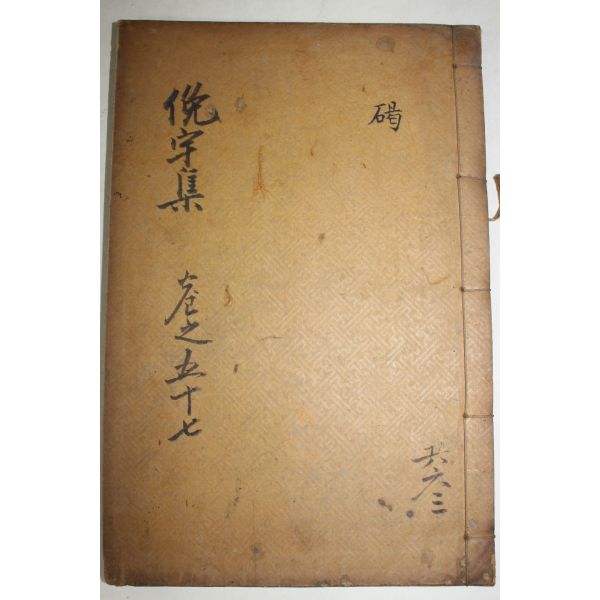 碣
俛宇集 卷之五十七
共六三